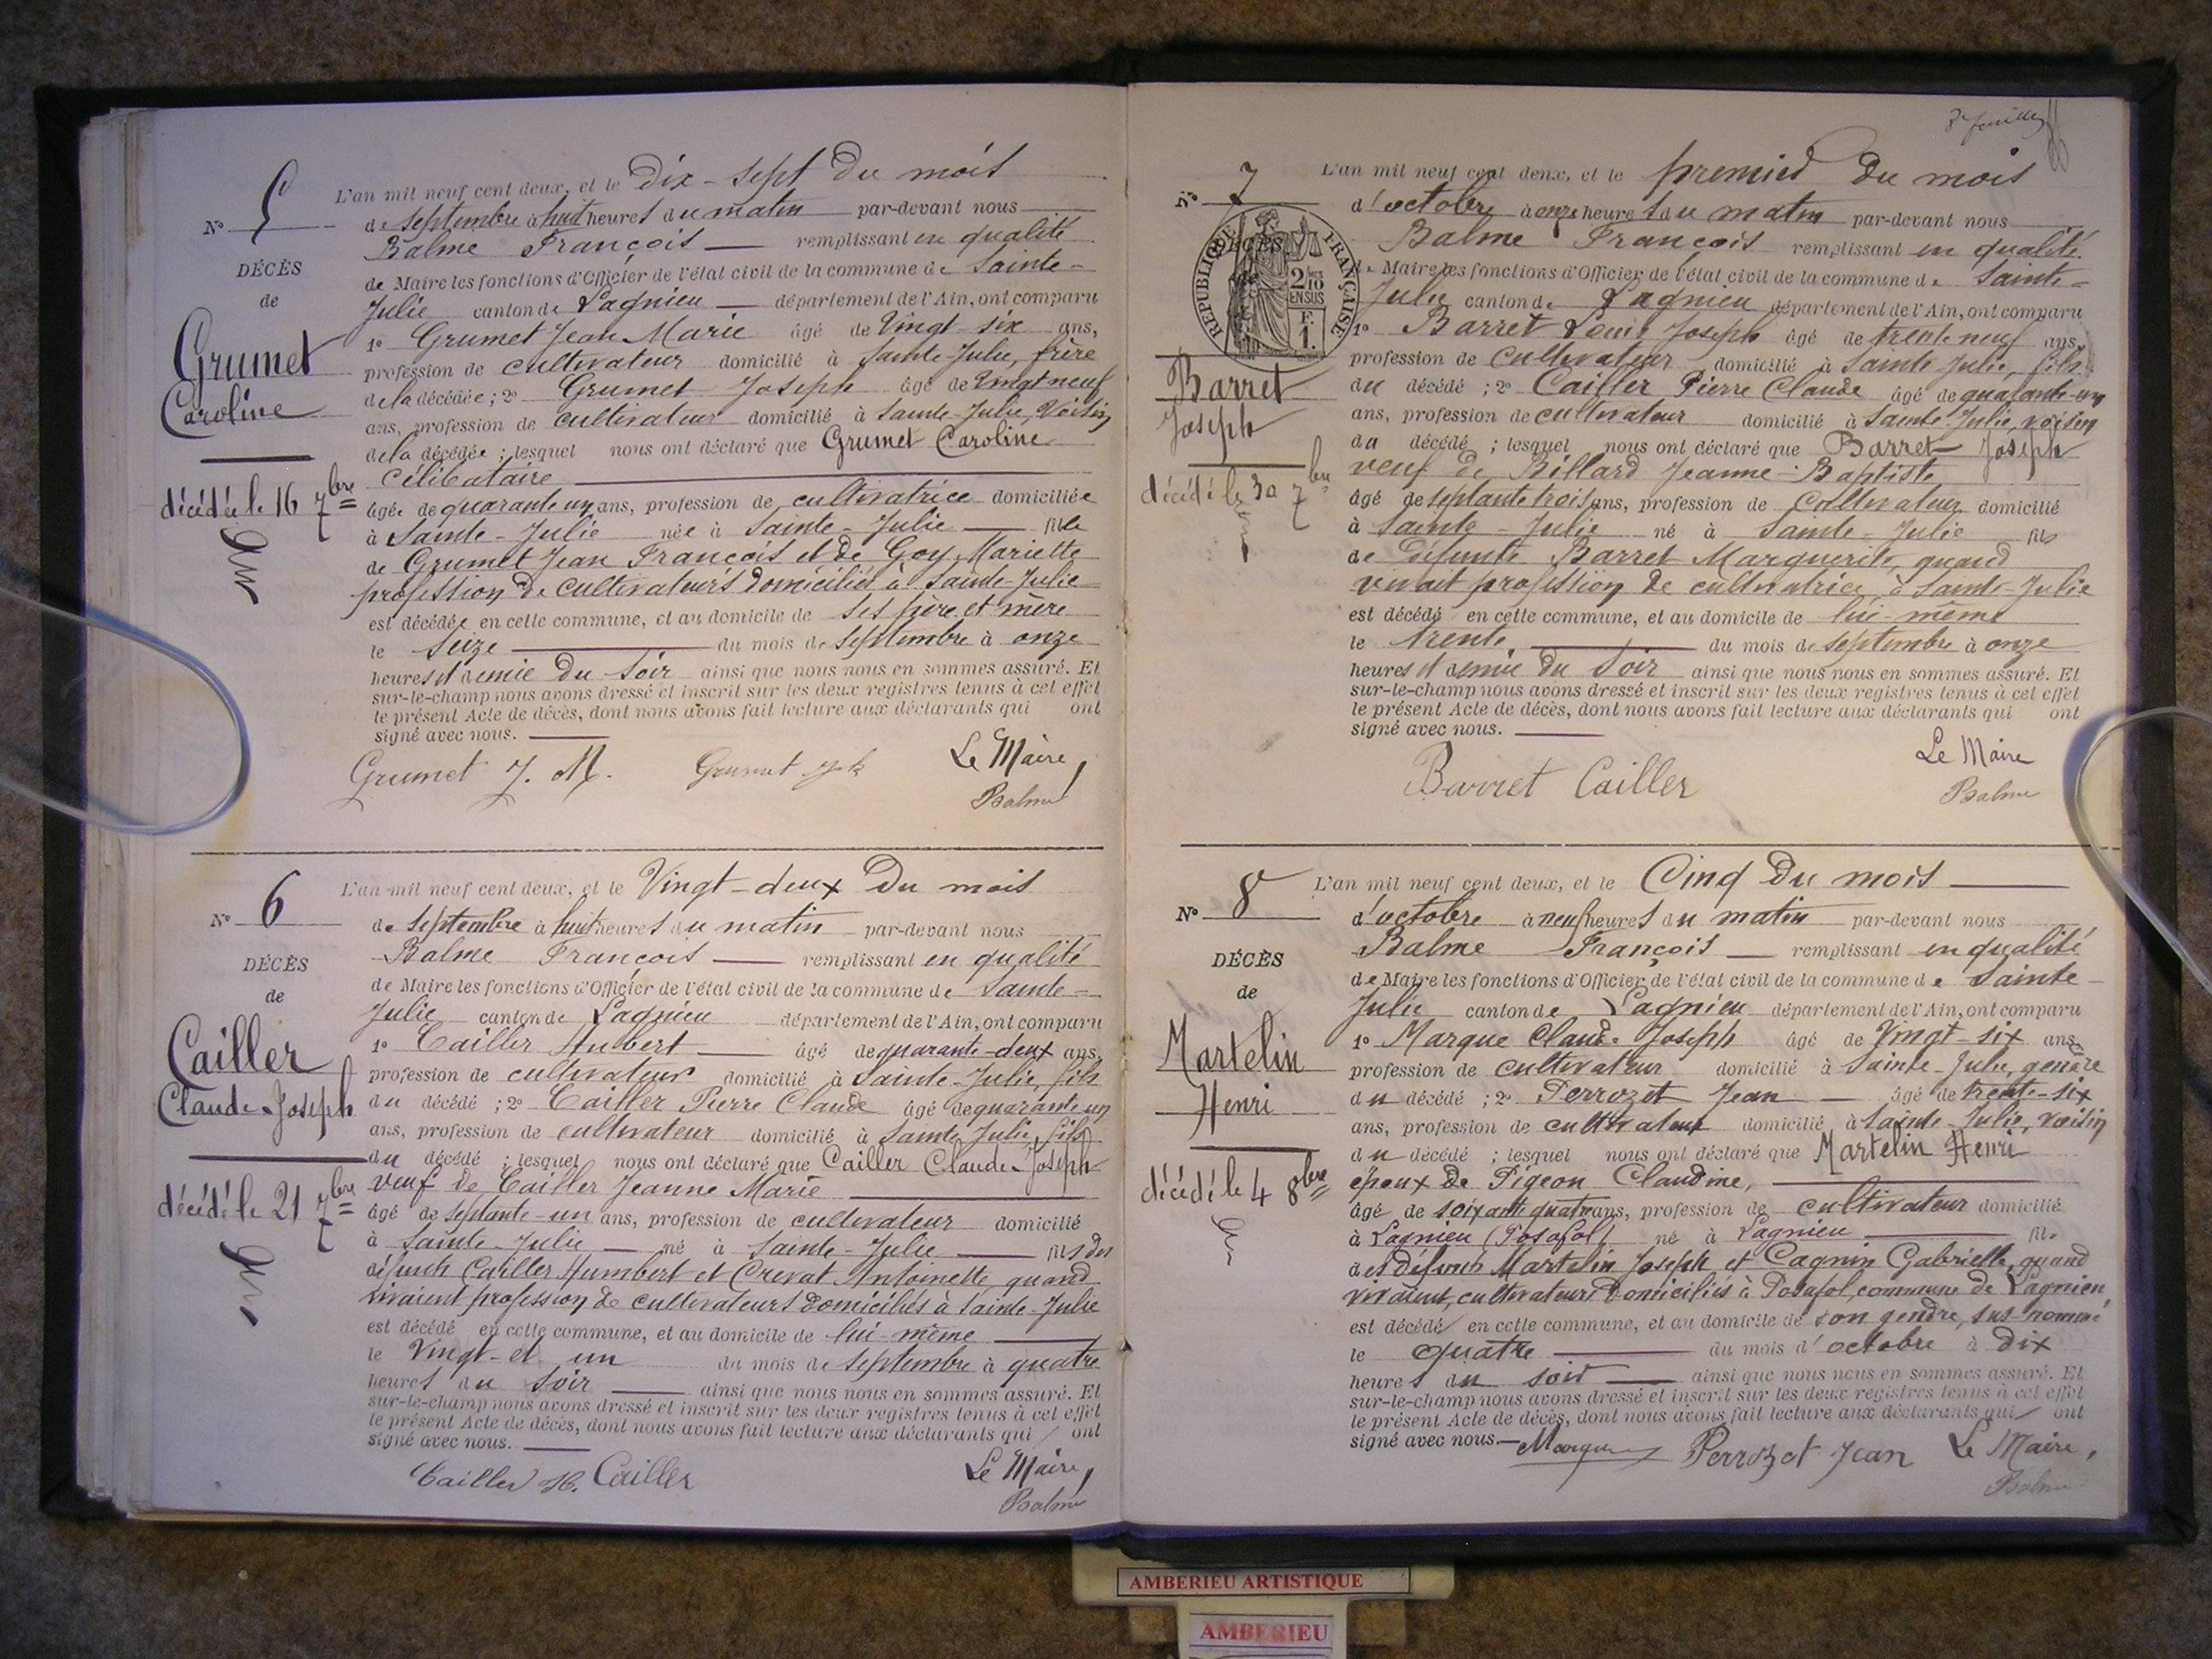 N° 5
DÉCÈS
de
Grumet
Caroline
décédée le 16 7bre
L'an mil neuf cent deux, et le Dix-sept du mois
de septembre à huit heures du matin par-devant nous
Balme François remplissant en qualité
de Maire les fonctions d'Officier de l'état civil de la commune de Sainte-
Julie canton de Lagnieu département de l'Ain, ont comparu
1° Grumet Jean Marie âgé de Vingt-six ans,
profession de cultivateur domicilié à Sainte-Julie, frère
de la décédée; 2° Grumet Joseph âgé de Vingt neuf
ans, profession de cultivateur domicilié à Sainte-Julie, Voisin
de la décédée; lesquel nous ont déclaré que Grumet Caroline
célibataire
âgée de quarante un ans, profession de cultivatrice domiciliée
à Sainte-Julie née à Sainte-Julie fille
de Grumet Jean François et de Goy Mariette
profession de cultivateurs domiciliés à Sainte-Julie
est décédée en cette commune, et au domicile de ses père et mère
le seize du mois de septembre à onze
heures et demie du soir ainsi que nous nous en sommes assuré. Et
sur-le-champ nous avons dressé et inscrit sur les deux registres tenus à cet effet
le présent Acte de décès, dont nous avons fait lecture aux déclarants qui ont
signé avec nous.
Grumet J. M. Grumet Le Maire,
Balme
N° 6
DÉCÈS
de
Cailler
Claude-Joseph
décédé le 21 7bre
L'an mil neuf cent deux, et le Vingt-deux du mois
de septembre à huit heures du matin par-devant nous
Balme François remplissant en qualité
de Maire les fonctions d'Officier de l'état civil de la commune de Sainte-
Julie canton de Lagnieu département de l'Ain, ont comparu
1° Cailler Hubert âgé de quarante-deux ans,
profession de cultivateur domicilié à Sainte-Julie, fils
du décédé; 2° Cailler Pierre Claude âgé de quarante un
ans, profession de cultivateur domicilié à Sainte Julie, fils
du décédé; lesquel nous ont déclaré que Cailler Claude-Joseph
veuf de Cailler Jeanne Marie
âgé de septante-un ans, profession de cultivateur domicilié
à Sainte-Julie né à Sainte-Julie fils des
défunts Cailler Humbert et Crevat Antoinette quand
vivaient profession de cultivateurs domiciliés à Sainte-Julie
est décédé en cette commune, et au domicile de lui-même
le Vingt-et un du mois de septembre à quatre
heures du soir ainsi que nous nous en sommes assuré. Et
sur-le-champ nous avons dressé et inscrit sur les deux registres tenus à cet effet
le présent Acte de décès, dont nous avons fait lecture aux déclarants qui ont
signé avec nous.
Cailler H. Cailler Le Maire,
Balme
3e feuillet
N° 7
DÉCÈS
RÉPUBLIQUE FRANÇAISE
2/10
EN SUS
F.
1.
Barret
Joseph
décédé le 30 7bre
L'an mil neuf cent deux, et le premier du mois
d'octobre à onze heures du matin par-devant nous
Balme François remplissant en qualité
de Maire les fonctions d'Officier de l'état civil de la commune de Sainte-
Julie canton de Lagnieu département de l'Ain, ont comparu
1° Barret Louis Joseph âgé de trente neuf ans,
profession de cultivateur domicilié à Sainte-Julie, fils
du décédé; 2° Cailler Pierre Claude âgé de quarante-un
ans, profession de cultivateur domicilié à Sainte Julie, voisin
du décédé; lesquel nous ont déclaré que Barret Joseph
veuf de Billard Jeanne-Baptiste
âgé de septante trois ans, profession de cultivateur domicilié
à Sainte-Julie né à Sainte-Julie fils
de défunte Barret Marguerite, quand
vivait profession de cultivatrice à Sainte-Julie
est décédé en cette commune, et au domicile de lui-même
le trente du mois de septembre à onze
heures et demie du soir ainsi que nous nous en sommes assuré. Et
sur-le-champ nous avons dressé et inscrit sur les deux registres tenus à cet effet
le présent Acte de décès, dont nous avons fait lecture aux déclarants qui ont
signé avec nous.
Barret Cailler Le Maire
Balme
N° 8
DÉCÈS
de
Martelin
Henri
décédé le 4 8bre
L'an mil neuf cent deux, et le Cinq du mois
d'octobre à neuf heures du matin par-devant nous
Balme François remplissant en qualité
de Maire les fonctions d'Officier de l'état civil de la commune de Sainte-
Julie canton de Lagnieu département de l'Ain, ont comparu
1° Marque Claude Joseph âgé de Vingt-six ans,
profession de cultivateur domicilié à Sainte-Julie, gendre
du décédé; 2° Perrozet Jean âgé de trente-six
ans, profession de cultivateur domicilié à Sainte-Julie, voisin
du décédé; lesquel nous ont déclaré que Martelin Henri
époux de Pigeon Claudine,
âgé de soixante quatre ans, profession de cultivateur domicilié
à Lagnieu (Posafol) né à Lagnieu fils
des défunts Martelin Joseph et Cagnin Gabrielle, quand
vivaient, cultivateurs domiciliés à Posafol, commune de Lagnieu
est décédé en cette commune, et au domicile de son gendre, sus-nommé
le quatre du mois d'octobre à dix
heures du soir ainsi que nous nous en sommes assuré. Et
sur-le-champ nous avons dressé et inscrit sur les deux registres tenus à cet effet
le présent Acte de décès, dont nous avons fait lecture aux déclarants qui ont
signé avec nous. Marque Perrozet Jean Le Maire,
Balme
AMBERIEU ARTISTIQUE
AMBERIEU